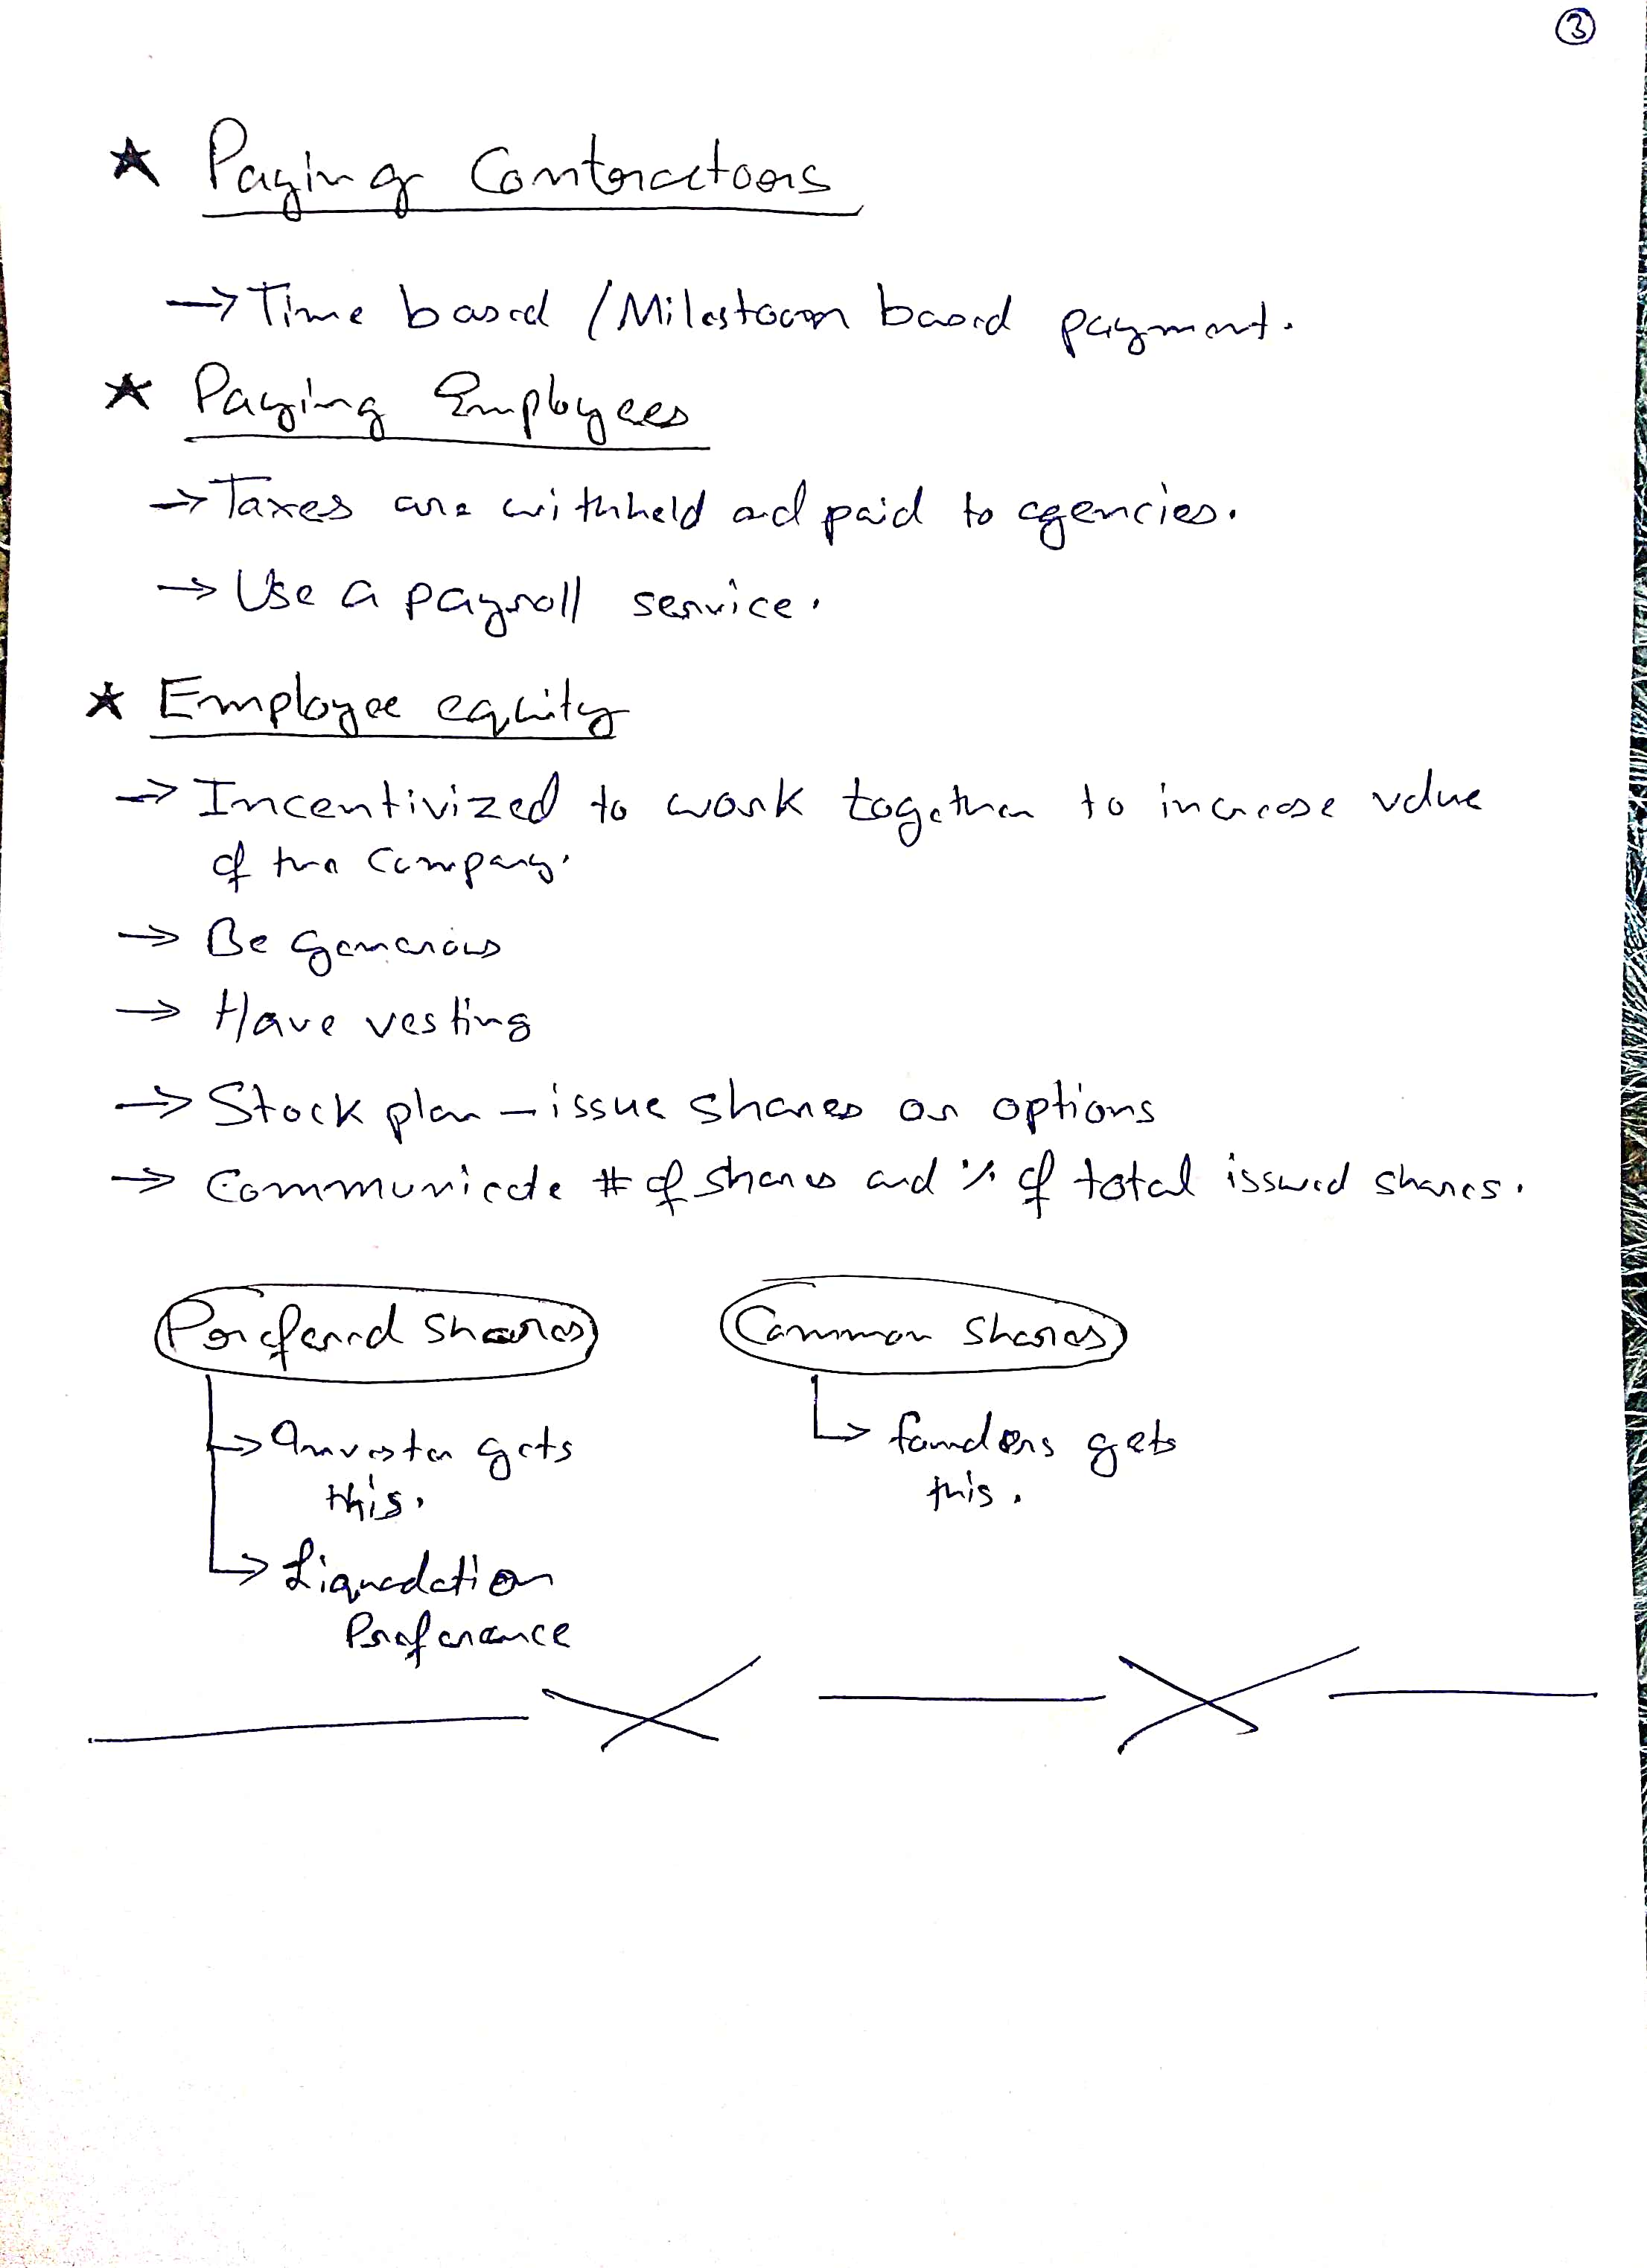 ③
★ Paying Contractors
→ Time based / Milestoon based payment.
★ Paying Employees
→ Taxes are withheld and paid to agencies.
→ Use a payroll service.
★ Employee equity
→ Incentivized to work together to increase value
of the company.
→ Be generous
→ Have vesting
→ Stock plan – issue shares or options
→ Communicate # of shares and % of total issued shares.
Preferred shares Common shares
→ Investor gets → founders gets
this. this.
→ Liquedation
Preferance